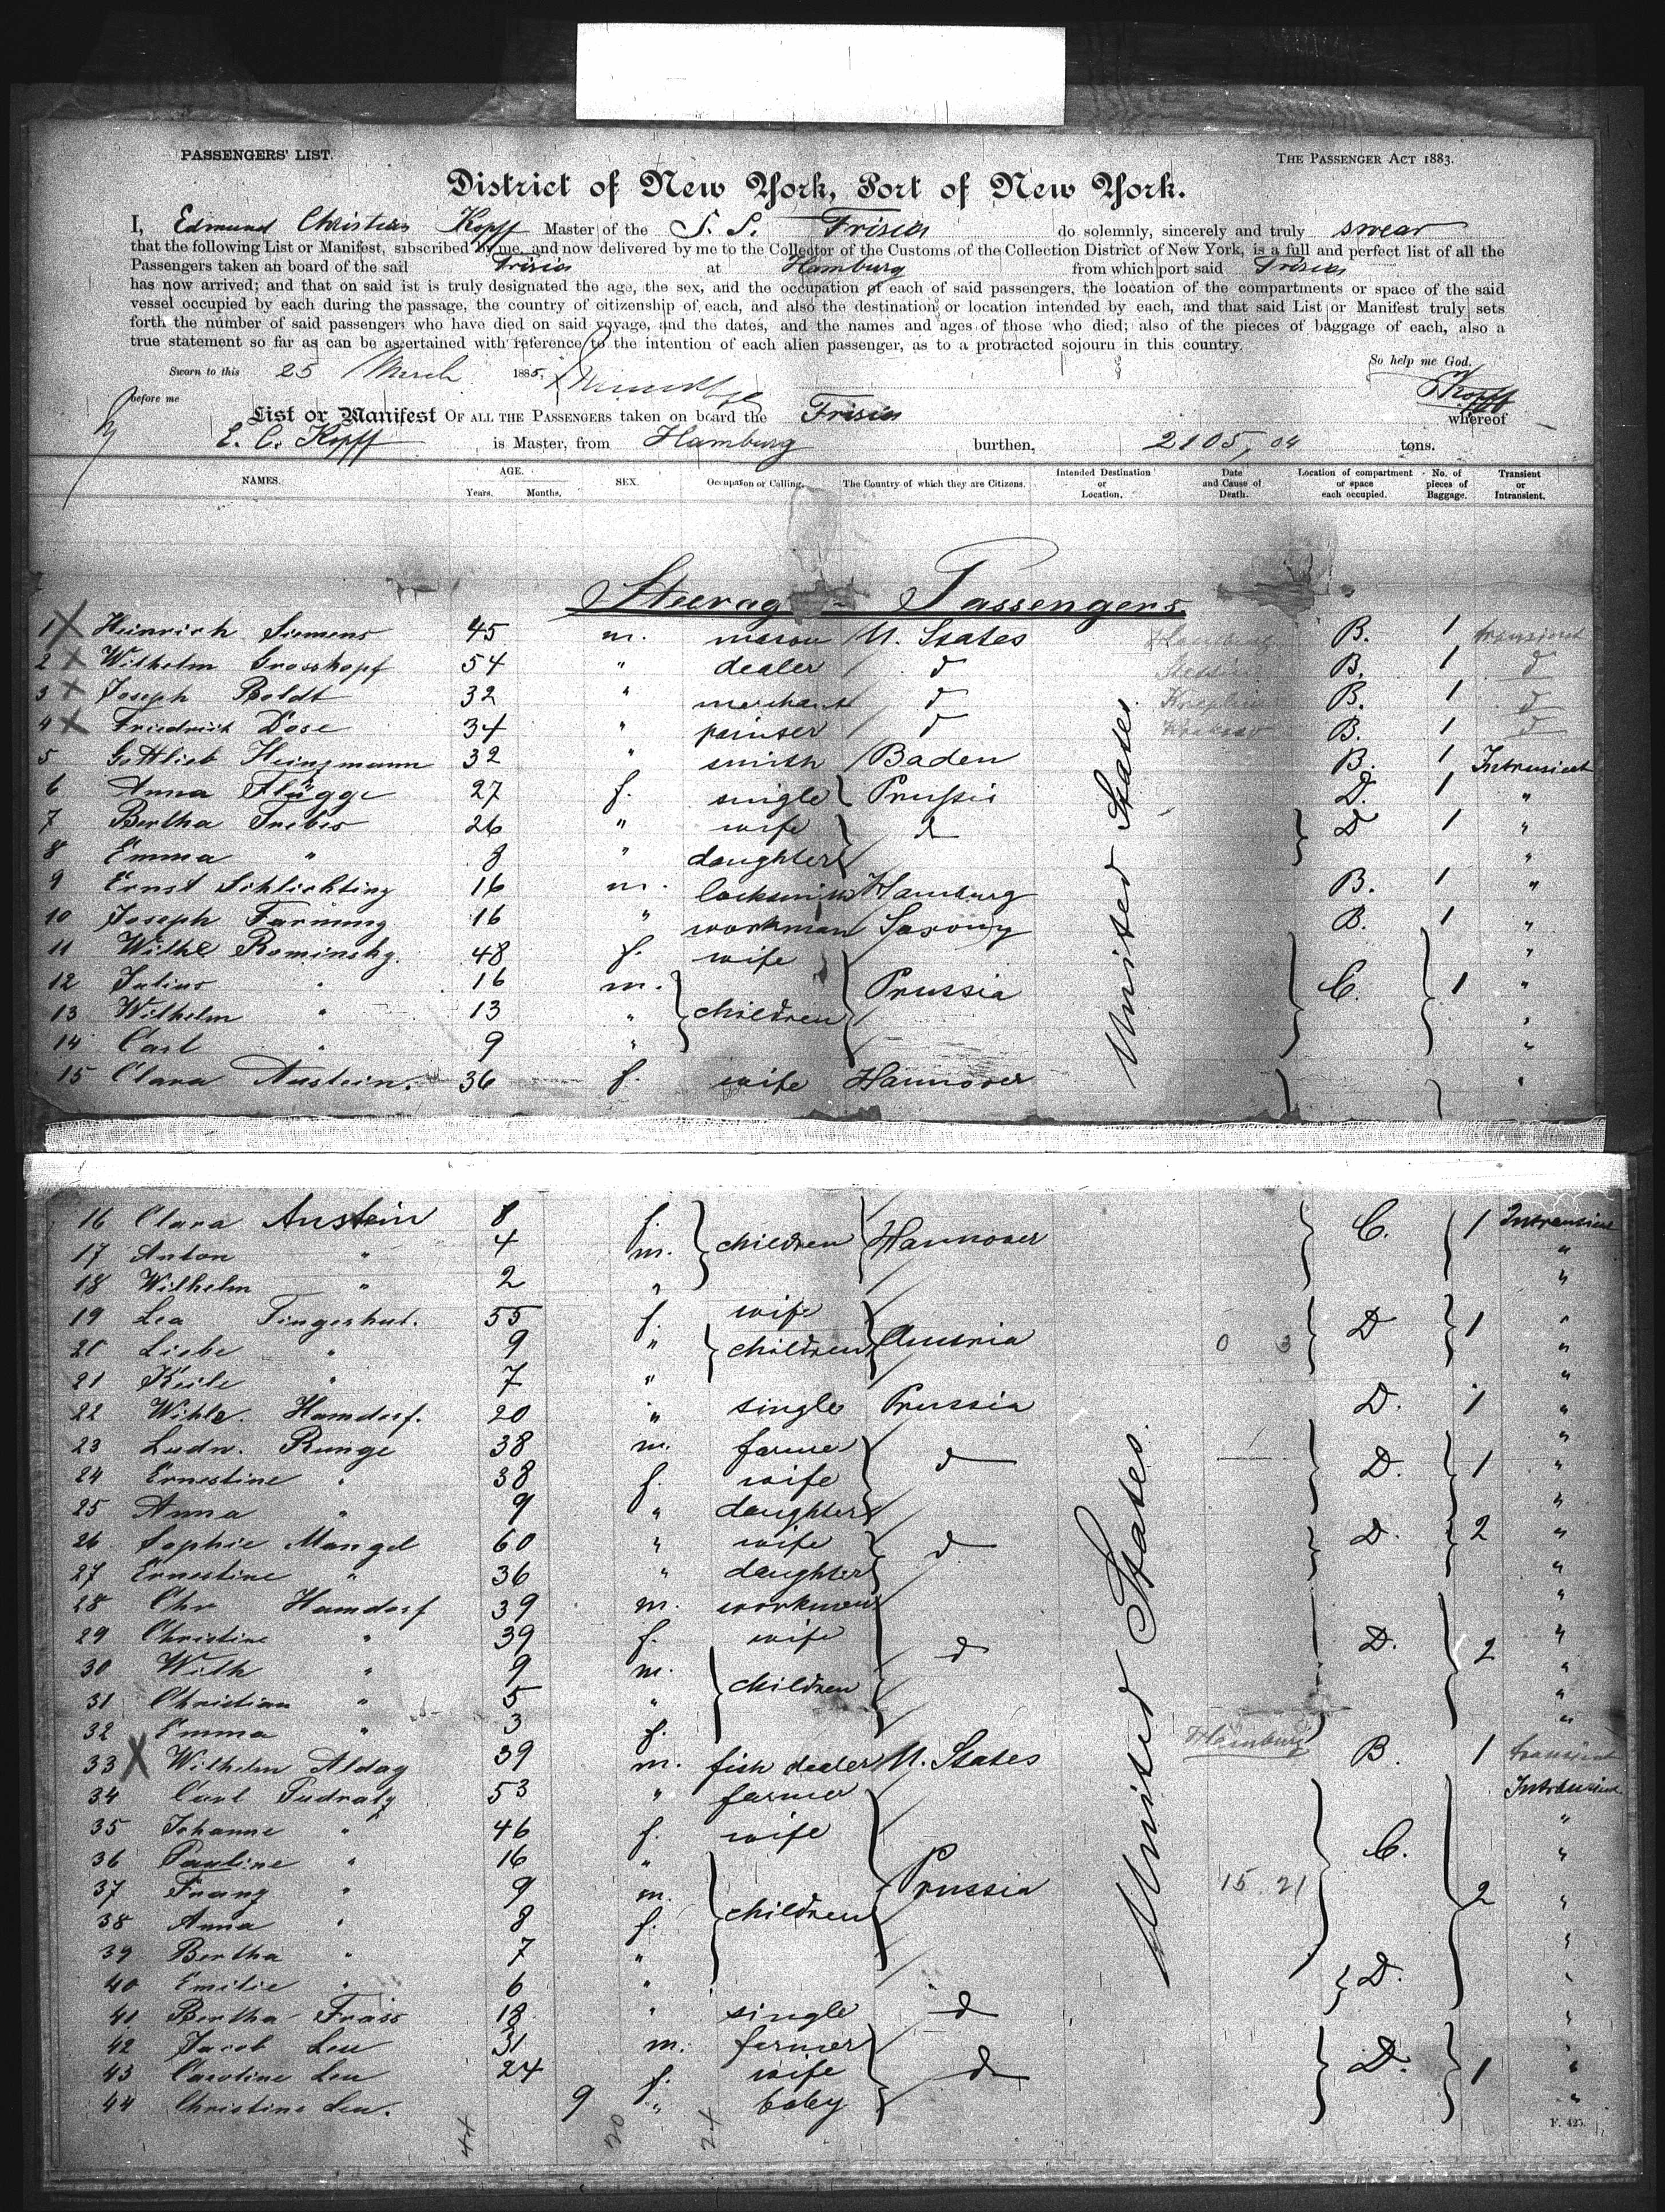 PASSENGERS' LIST.
THE PASSENGER ACT 1883.
District of New York, Port of New York.
I, Edmund Christian Kopff Master of the S. S. Frisia do solemnly, sincerely and truly swear
that the following List or Manifest, subscribed by me, and now delivered by me to the Collector of the Customs of the Collection District of New York, is a full and perfect list of all the
Passengers taken an board of the said Frisia at Hamburg from which port said Frisia
has now arrived; and that on said ist is truly designated the age, the sex, and the occupation of each of said passengers, the location of the compartments or space of the said
vessel occupied by each during the passage, the country of citizenship of each, and also the destination or location intended by each, and that said List or Manifest truly sets
forth the number of said passengers who have died on said voyage, and the dates, and the names and ages of those who died; also of the pieces of baggage of each, also a
true statement so far as can be ascertained with reference to the intention of each alien passenger, as to a protracted sojourn in this country.
So help me God.
Sworn to this 25 March 1885,
before me
Kopff
List or Manifest OF ALL THE PASSENGERS taken on board the Frisia whereof
E. C. Kopff is Master, from Hamburg burthen, 2105,04 tons.
NAMES. AGE. Years. Months. SEX. Occupation or Calling. The Country of which they are Citizens. Intended Destination or Location. Date and Cause of Death. Location of compartment or space each occupied. No. of pieces of Baggage. Transient or Intransient.
Steerage - Passengers
1 X Heinrich Siemens 45 m. mason U. States Hamburg B. 1 transient
2 X Wilhelm Grosskopf 54 " dealer d Stettin B. 1 d
3 X Joseph Boldt 32 " merchant d B. 1 d
4 X Friedrich Dose 34 " painter d B. 1 d
5 Gottlieb Heinzmann 32 " smith Baden B. 1 Intransient
6 Anna Flügge 27 f. single Prussia D. 1 "
7 Bertha 26 " wife d D 1 "
8 Emma " 8 " daughter "
9 Ernst Schlichting 16 m. locksmith Hamburg B. 1 "
10 Joseph 16 " workman Saxony B. 1 "
11 Wilhe Rominsky. 48 f. wife "
12 Julius " 16 m. Prussia C. 1 "
13 Wilhelm " 13 " children "
14 Carl " 9 " "
15 Clara Austein. 36 f. wife Hannover "
United States
16 Clara Austein 8 f. children Hannover C. 1 Intransient
17 Anton " 4 m. "
18 Wilhelm " 2 " "
19 Lea Fingerhut. 55 f. wife Austria D 1 "
20 Liebe " 9 " children 0 3 "
21 Keile " 7 " "
22 Wilhe. Hamdorf. 20 " single Prussia D. 1 "
23 Ludw. Runge 38 m. farmer d D. 1 "
24 Ernestine " 38 f. wife "
25 Anna " 9 " daughter "
26 Sophie Mangel 60 " wife d D. 2 "
27 Ernestine " 36 " daughter "
28 Chr Hamdorf 39 m. workman "
29 Christine " 39 f. wife d D. 2 "
30 Wilh " 9 m. children "
31 Christian " 5 " "
32 Emma " 3 f. "
33 X Wilhelm Aldag 39 m. fish dealer U. States Hamburg B. 1 transient
34 Carl Pudratz 53 " farmer Intransient
35 Johanne " 46 f. wife C. "
36 Pauline " 16 " "
37 Franz " 9 m. children Prussia 15 21 2 "
38 Anna " 8 f. "
39 Bertha " 7 " "
40 Emilie " 6 " D. "
41 Bertha 18 " single d "
42 Jacob Leu 31 m. farmer "
43 Caroline Leu 24 f. wife d D. 1 "
44 Christine Leu. 9 " baby "
United States.
44 20 24
F. 425.